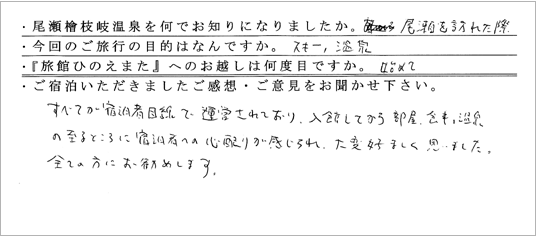 ・尾瀬檜枝岐温泉を何でお知りになりましたか。 尾瀬を訪れた際
・今回のご旅行の目的はなんですか。 スキー，温泉
・『旅館ひのえまた』へのお越しは何度目ですか。 始めて
・ご宿泊いただきましたご感想・ご意見をお聞かせ下さい。
すべてが宿泊者目線で運営されており、入館してから部屋、食事、温泉
の至るところに宿泊者への心配りが感じられ、大変好ましく思いました。
全ての方にお勧めします。